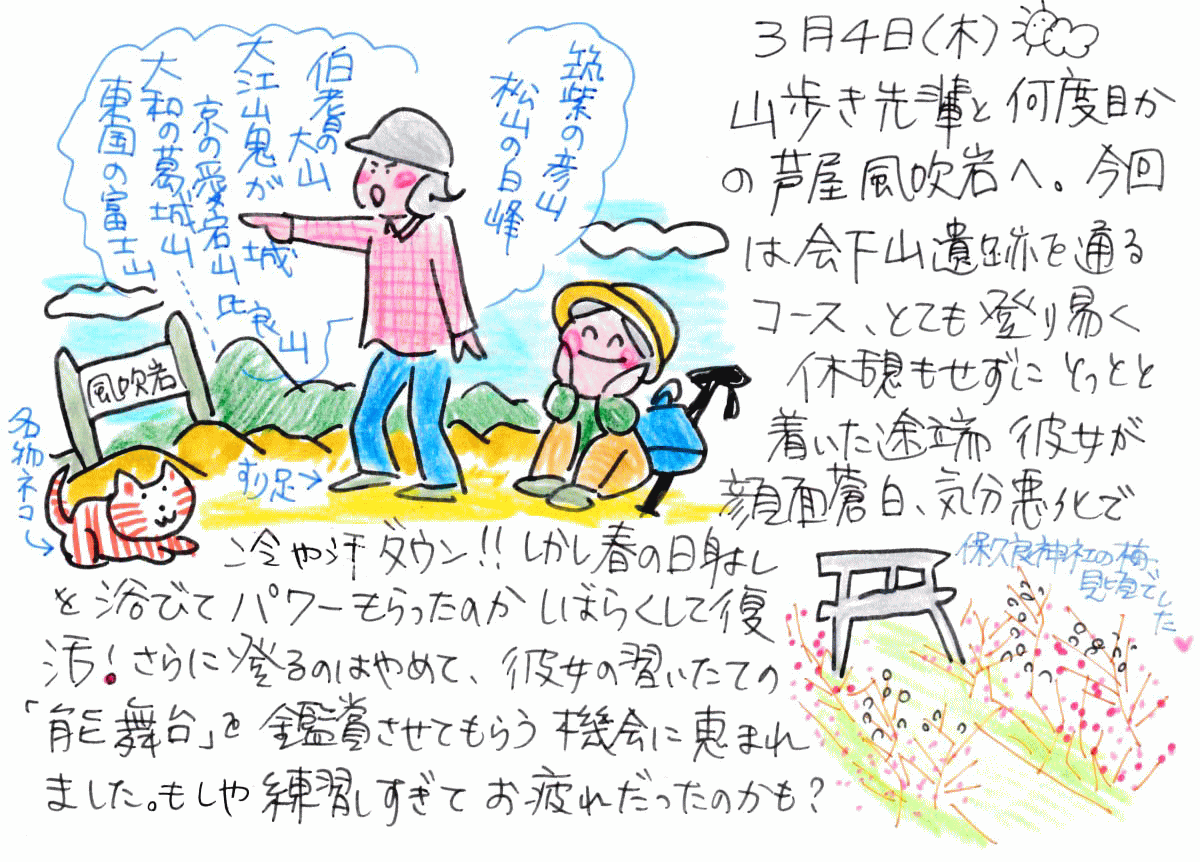 3月4日(木)
山歩き先輩と何度目か
の芦屋風吹岩へ。今回
は会下山遺跡を通る
コース、とても登り易く
休憩もせずにとっとと
着いた途端 彼女が
顔面蒼白、気分悪化で
冷や汗ダウン!!しかし春の日射し
を浴びてパワーもらったのかしばらくして復
活!さらに登るのはやめて、彼女の習いたての
「能舞台」を鑑賞させてもらう機会に恵まれ
ました。もしや練習しすぎてお疲れだったのかも?
筑紫の彦山
松山の白峰
伯耆の
大山
大江山鬼が城
京の愛宕山
比良山
大和の葛城山
東国の富士山
風吹岩
名物ネコ→
すり足→
保久良神社の梅、
見頃でした